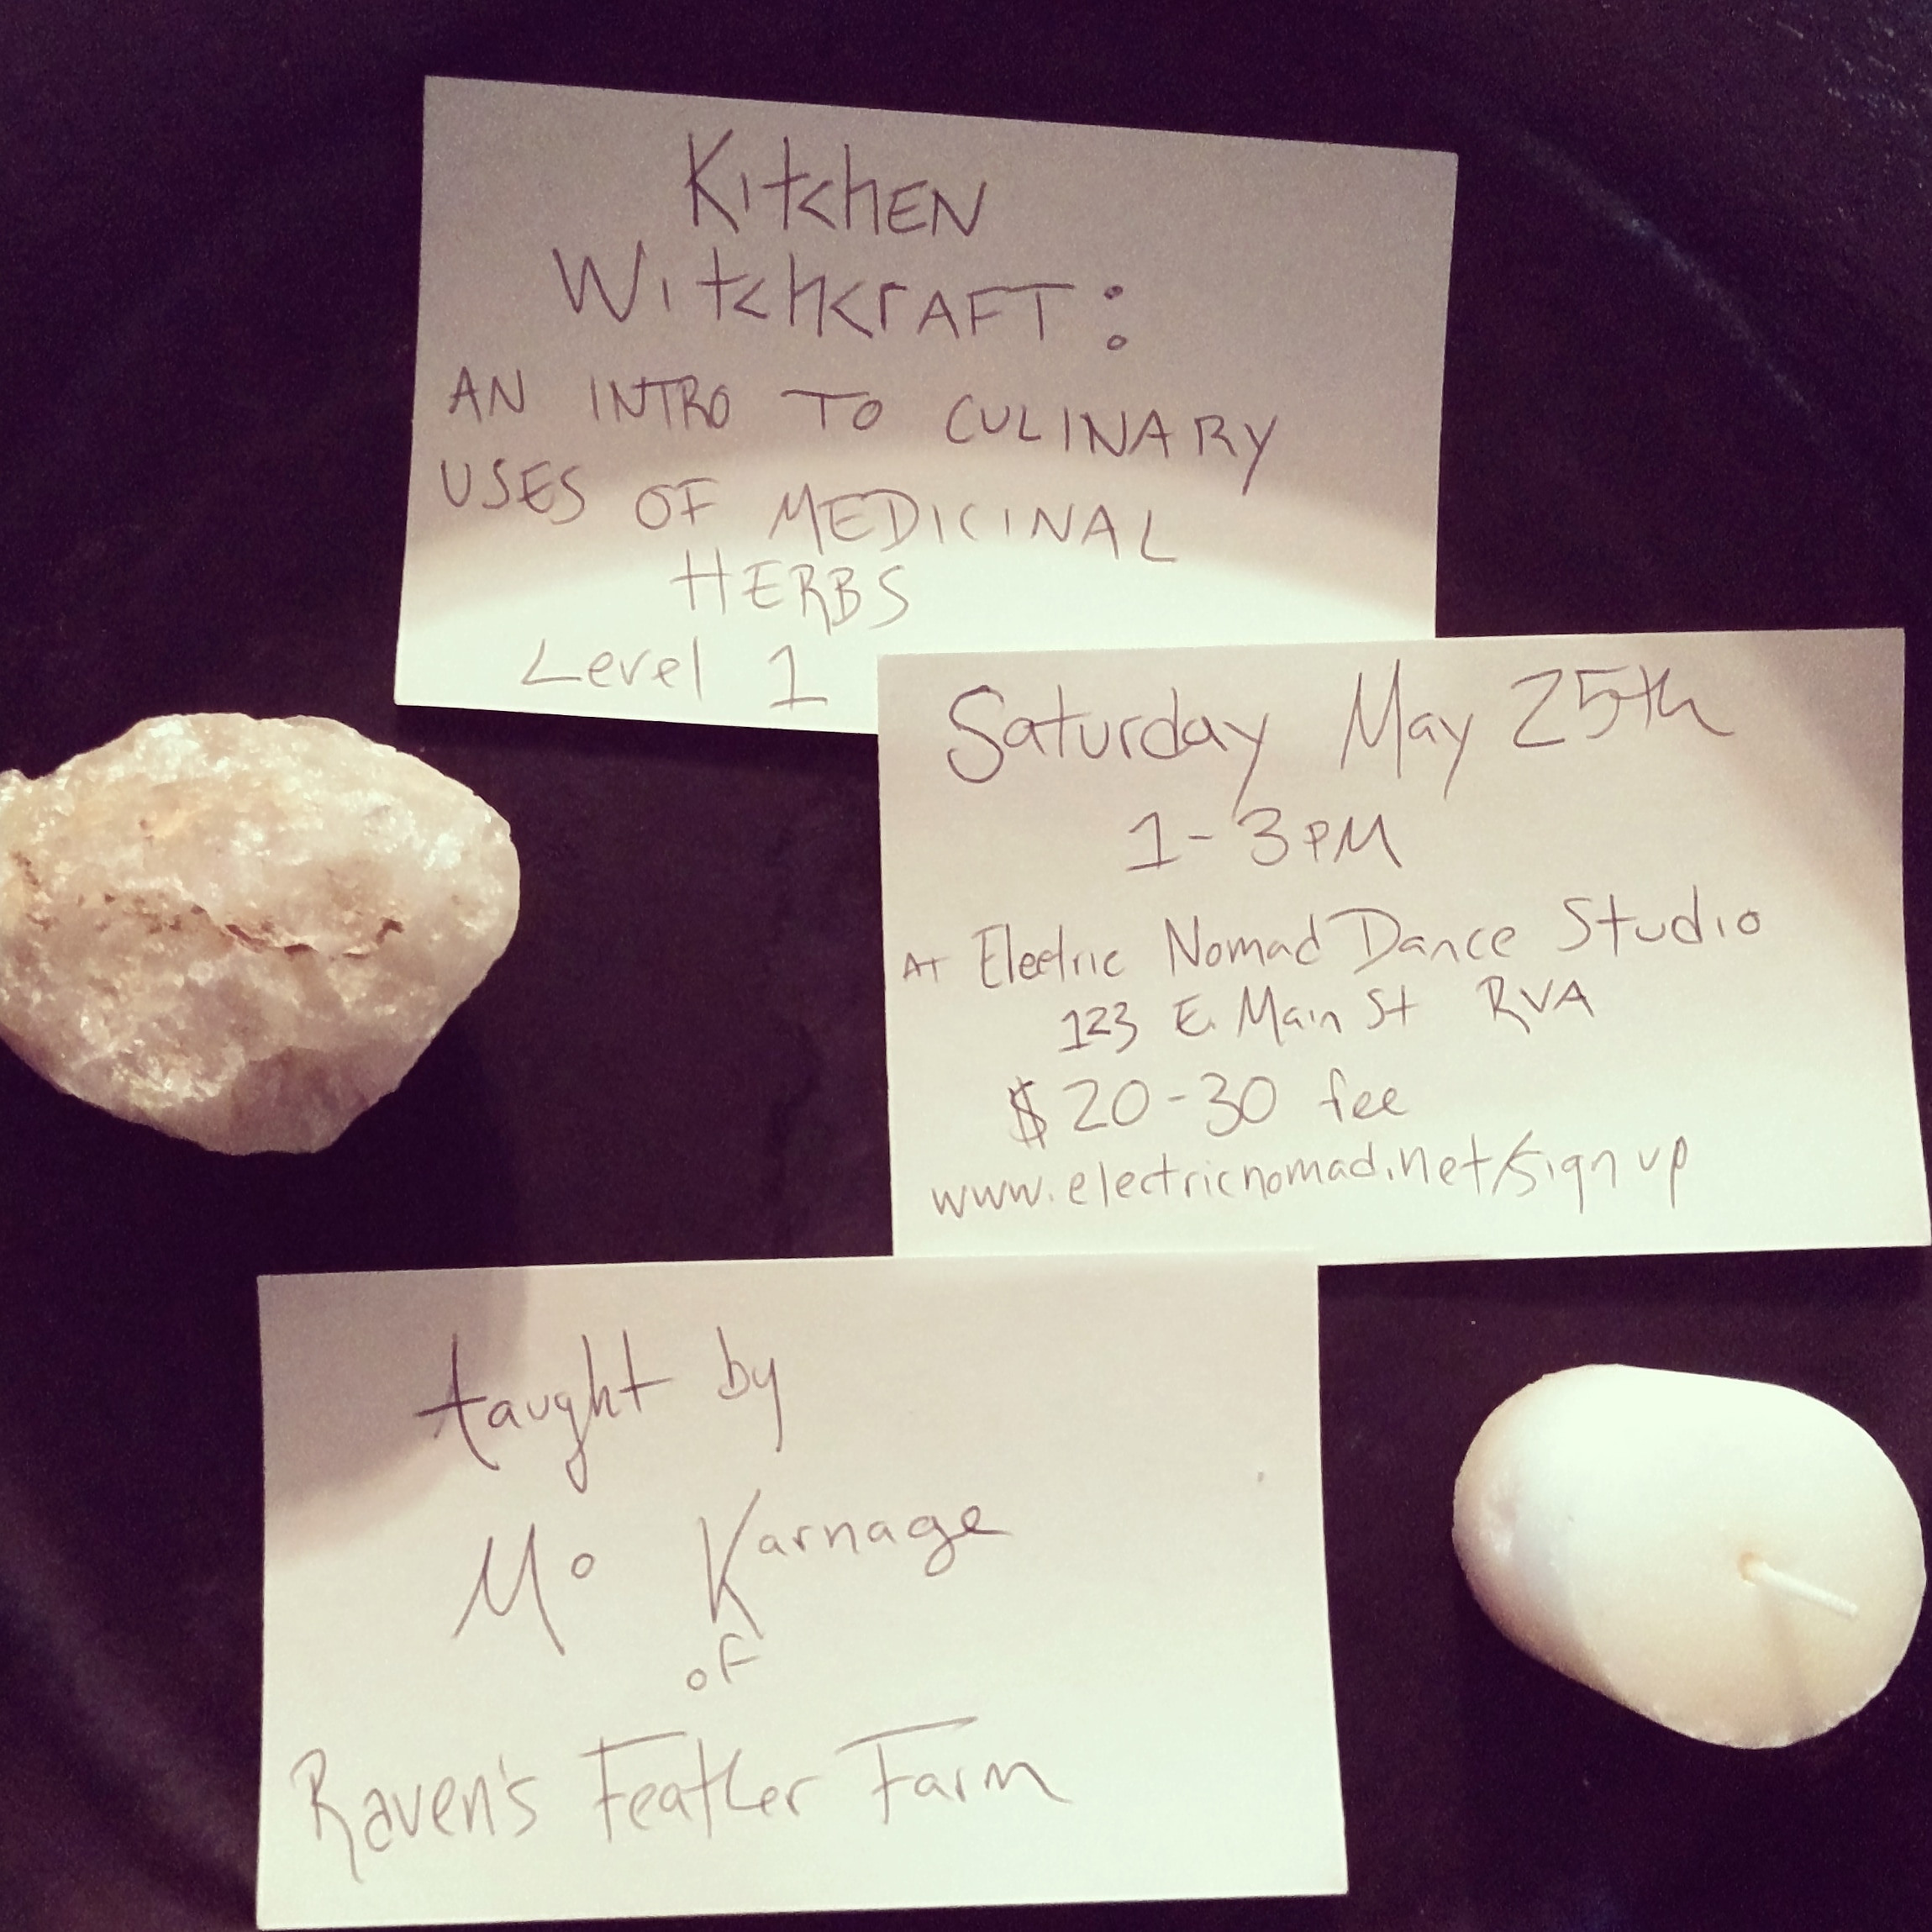 Kitchen
Witchcraft:
AN INTRO TO CULINARY
USES OF MEDICINAL
HERBS
Level 1
Saturday May 25th
1-3PM
AT Electric Nomad Dance Studio
123 E. Main St RVA
$20-30 fee
www.electricnomad.net/signup
taught by
Mo Karnage
of
Raven's Feather Farm